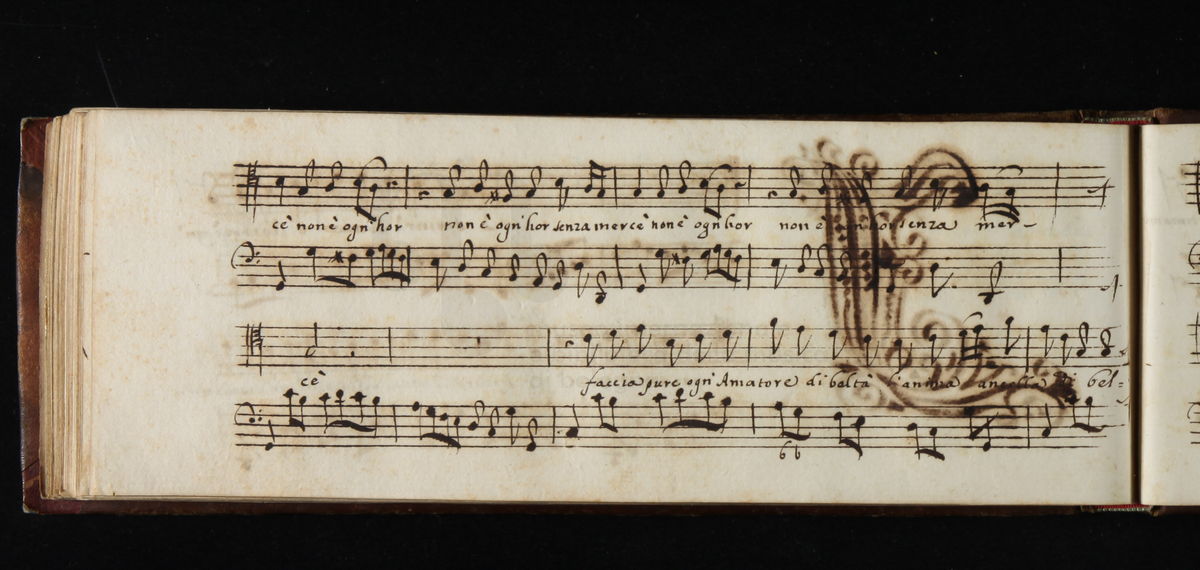 cè non è ogn'hor non è ogn'hor senza mercè non è ogn'hor non è ogn'hor senza mer-
cè faccia pure ogn'Amatore di beltà l'anima ancella di bel=
6 b